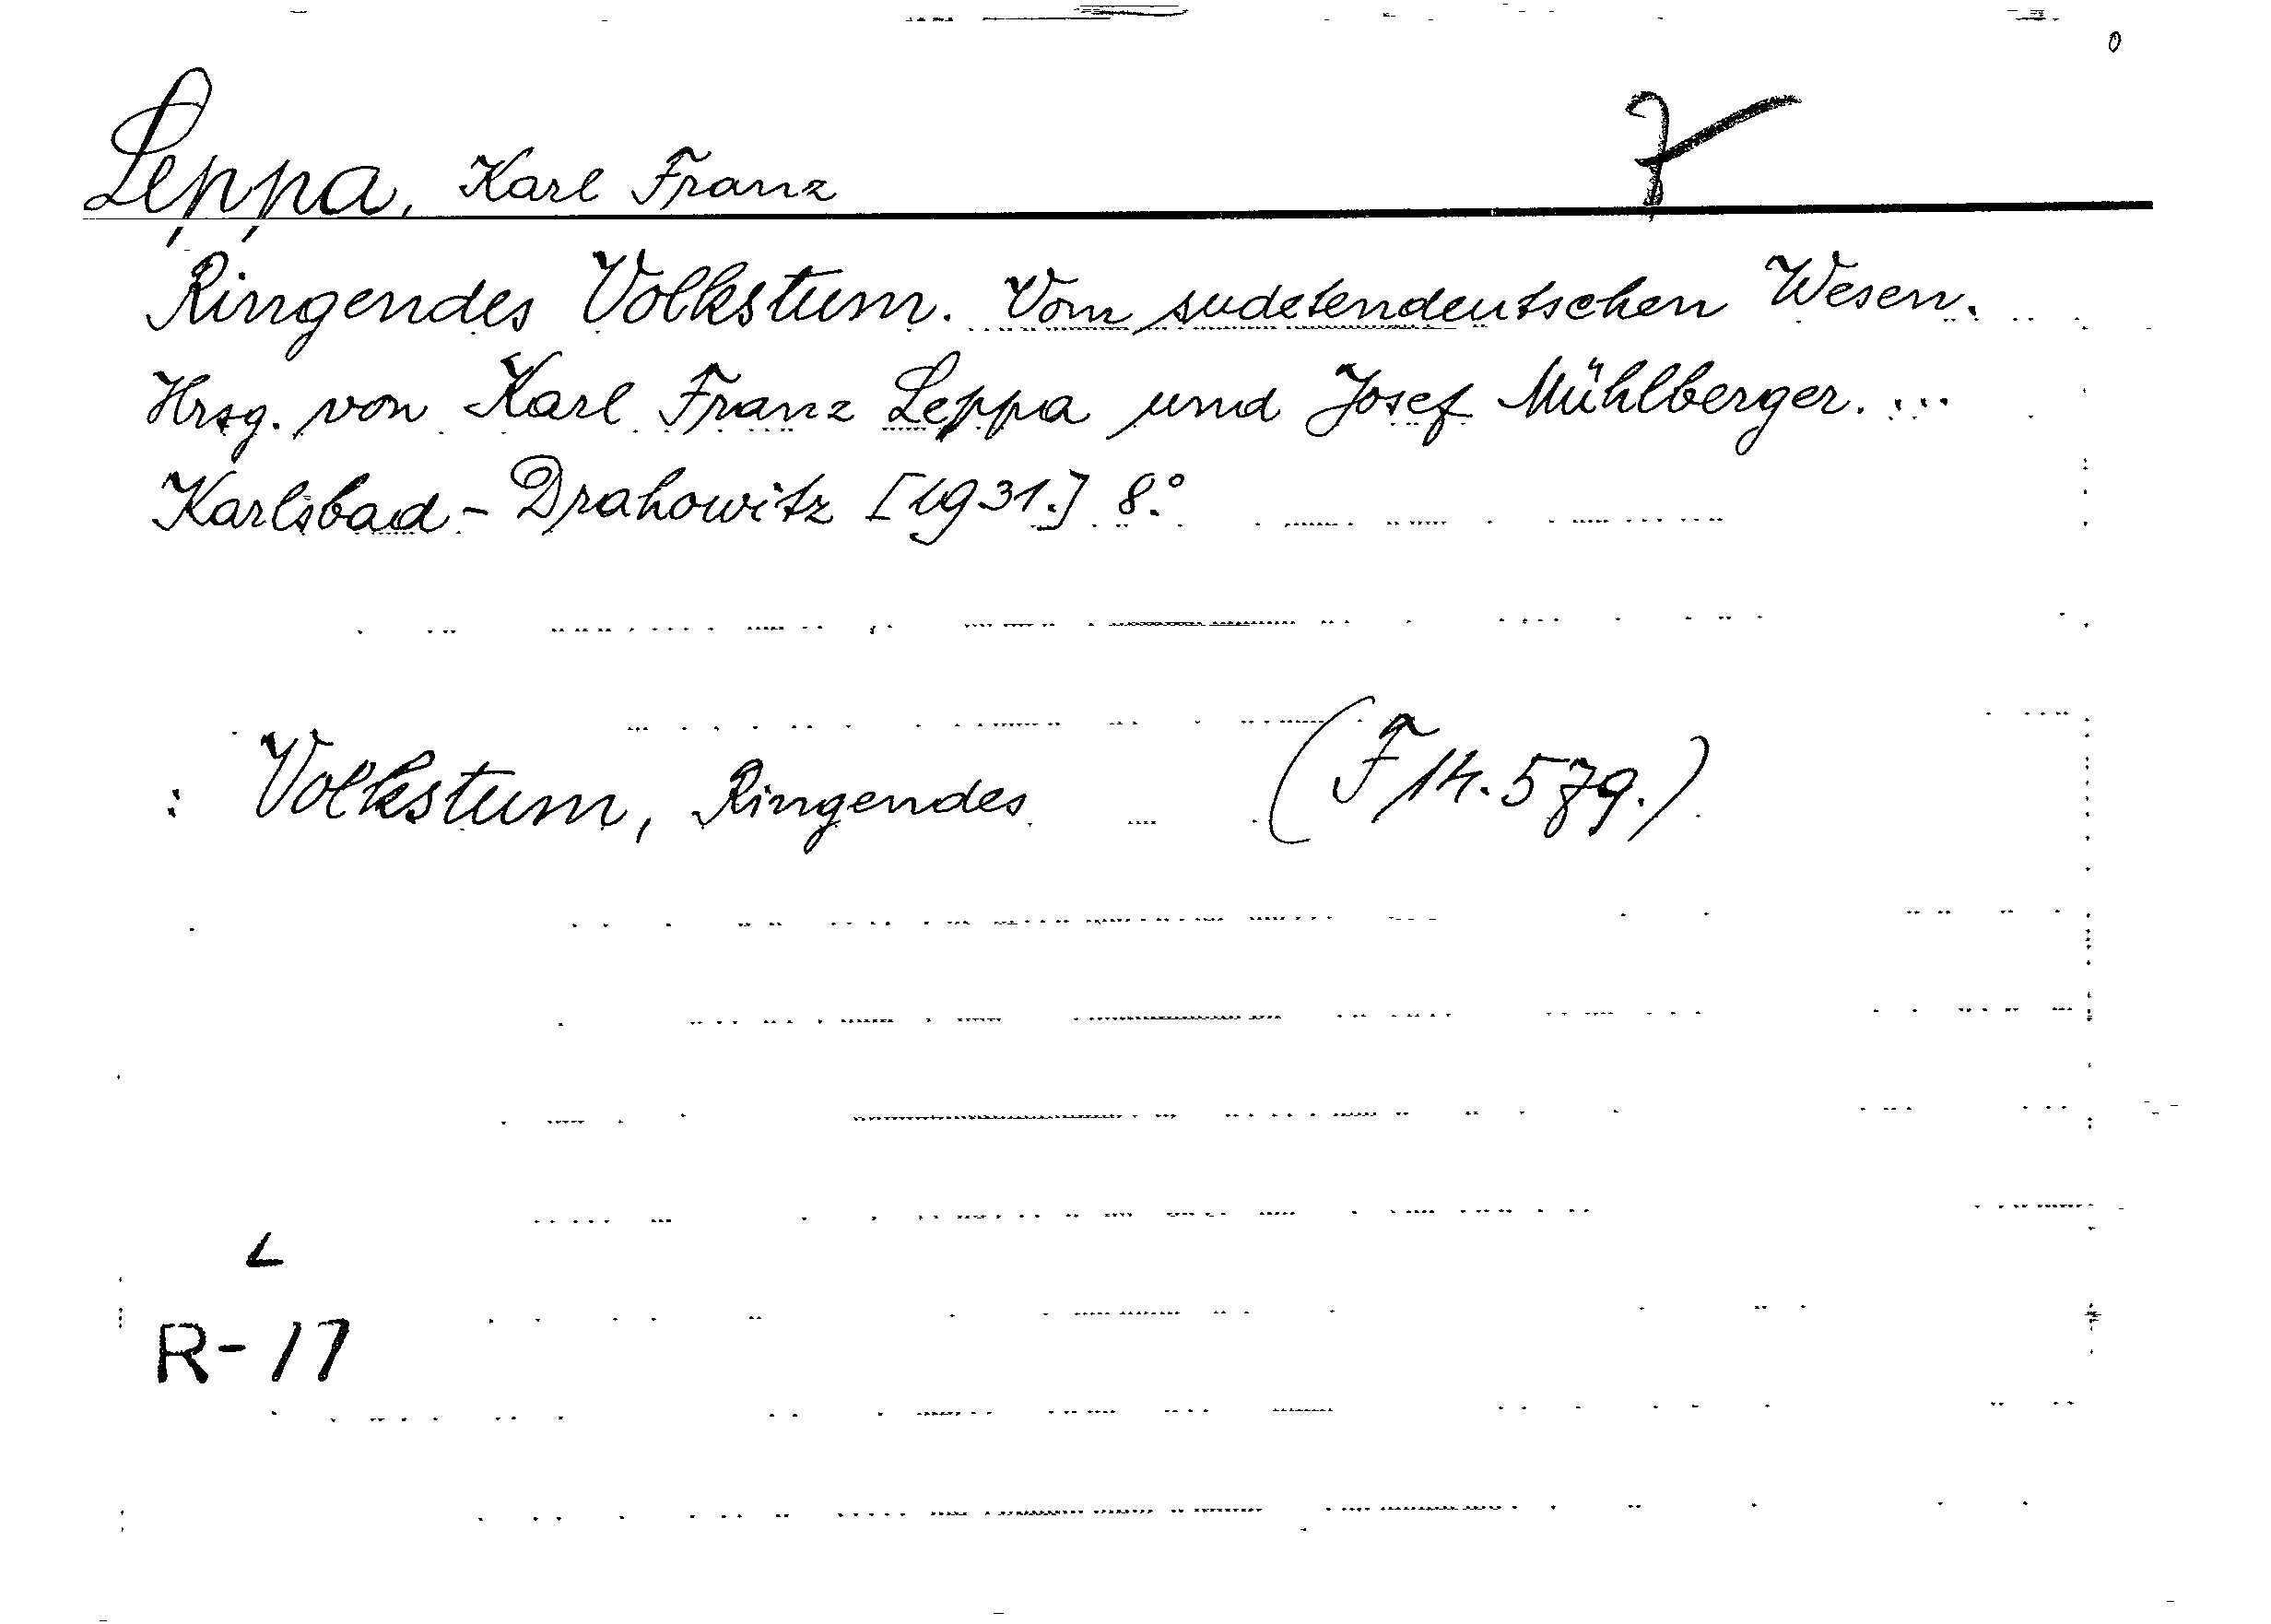 Leppa, Karl Franz
Ringendes Volkstum. Vom sudetendeutschen Wesen.
Hrsg. von Karl Franz Leppa und Josef Mühlberger. ...
Karlsbad-Drahowitz [1931.] 8.°
: Volkstum, Ringendes (F 14.579.)
L
R-17